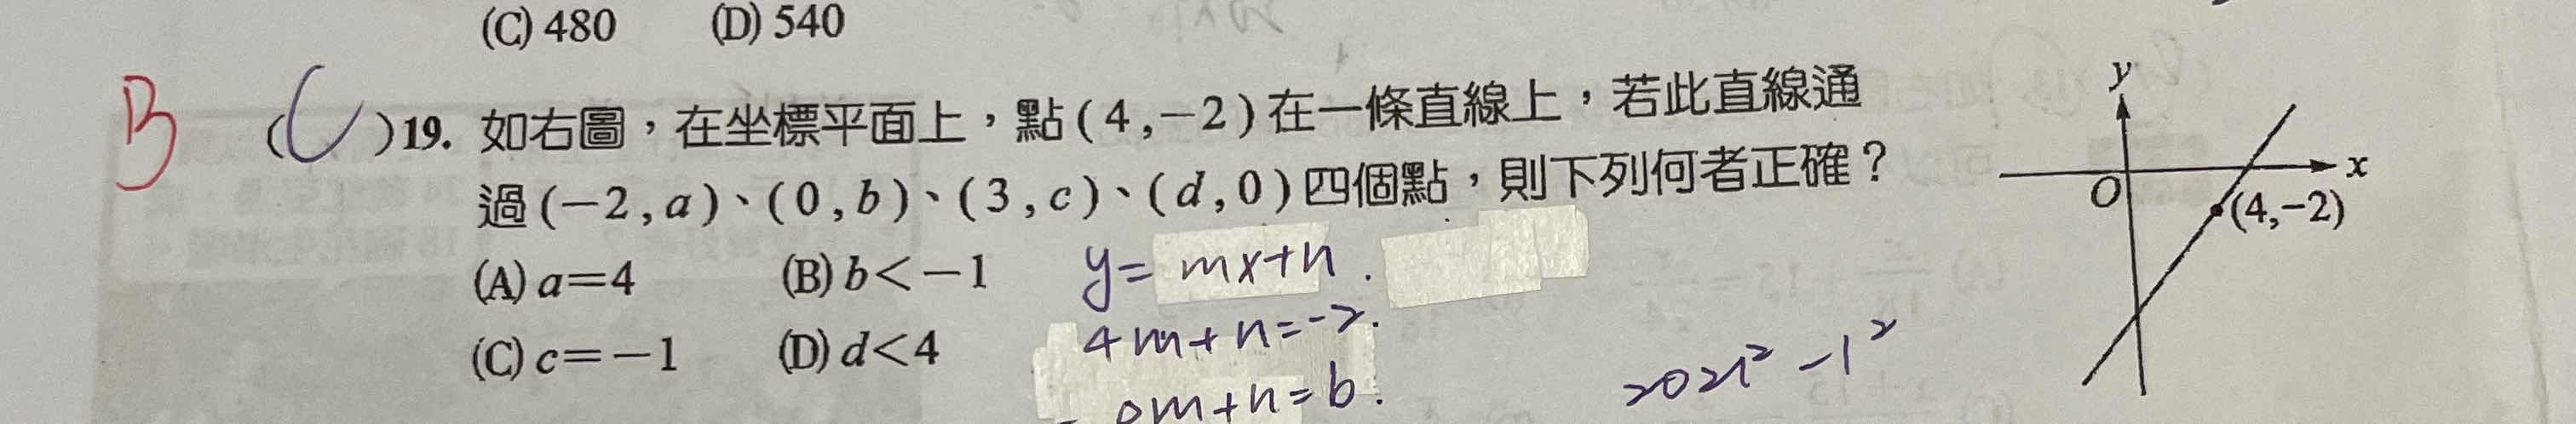 (C) 480 (D) 540
B
( C )19. 如右圖，在坐標平面上，點(4,−2)在一條直線上，若此直線通
過(−2,a)、(0,b)、(3,c)、(d,0)四個點，則下列何者正確？
(A) a=4 (B) b<−1
(C) c=−1 (D) d<4
y= mx+n.
4m+n=-2.
0m+n=b.
2021²-1²
y
x
O
(4,−2)